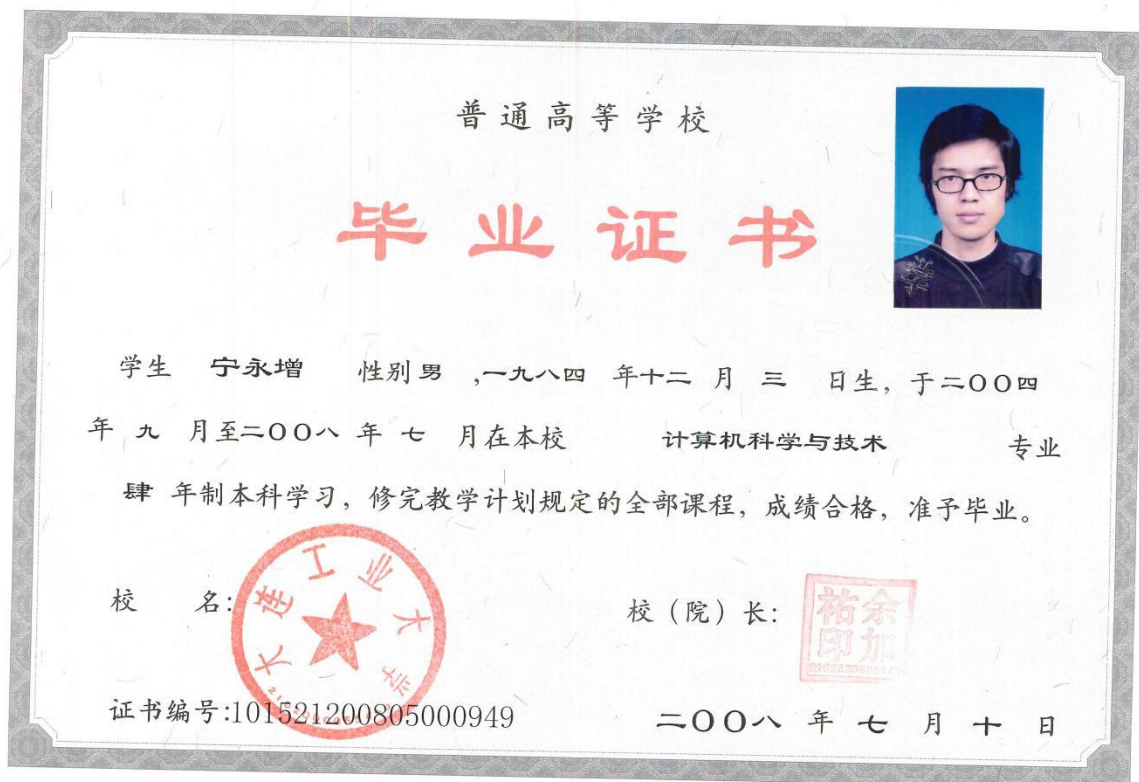 普通高等学校
毕业证书
学生 宁永增 性别 男 ,一九八四 年十二 月 三 日生，于二〇〇四
年 九 月至二〇〇八 年 七 月在本校 计算机科学与技术 专业
肆 年制本科学习，修完教学计划规定的全部课程，成绩合格，准予毕业。
校 名:
大连工业大学
校（院）长:
余加祐印
证书编号:101521200805000949
二〇〇八 年 七 月 十 日